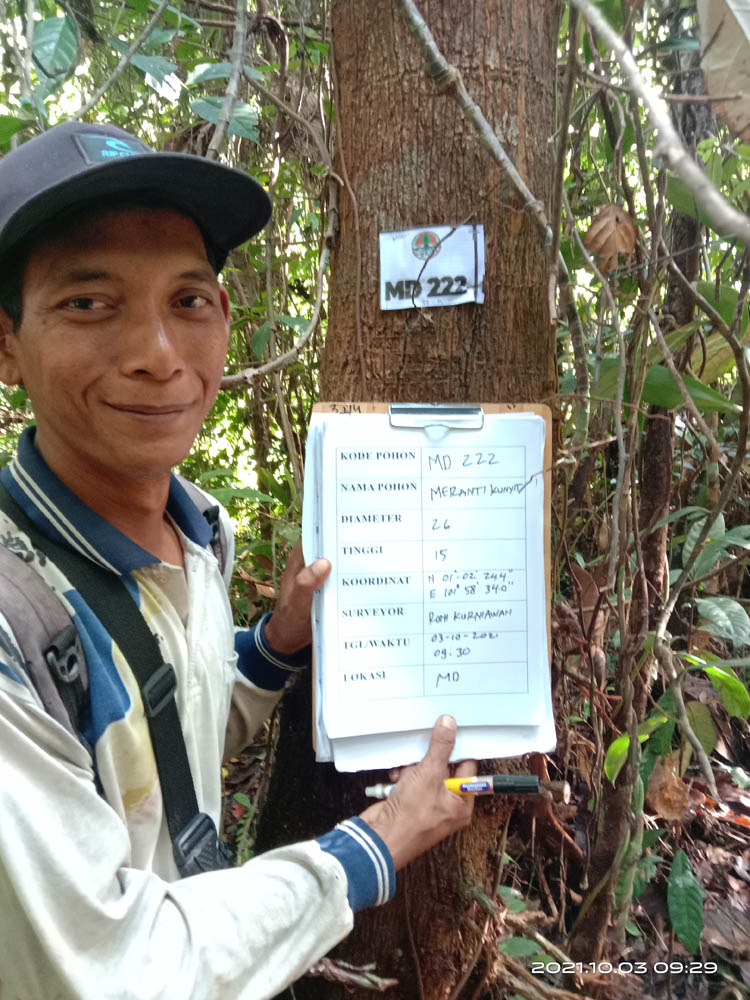 RIP CURL
MD 222
KODE POHON MD 222
NAMA POHON MERANTI KUNYIT
DIAMETER 26
TINGGI 15
KOORDINAT N 01°-02' 24.4"
E 101° 58' 34.0"
SURVEYOR KURNIAWAN
TGL/WAKTU 03-10-2021
09.30
LOKASI MD
2021.10.03 09:29